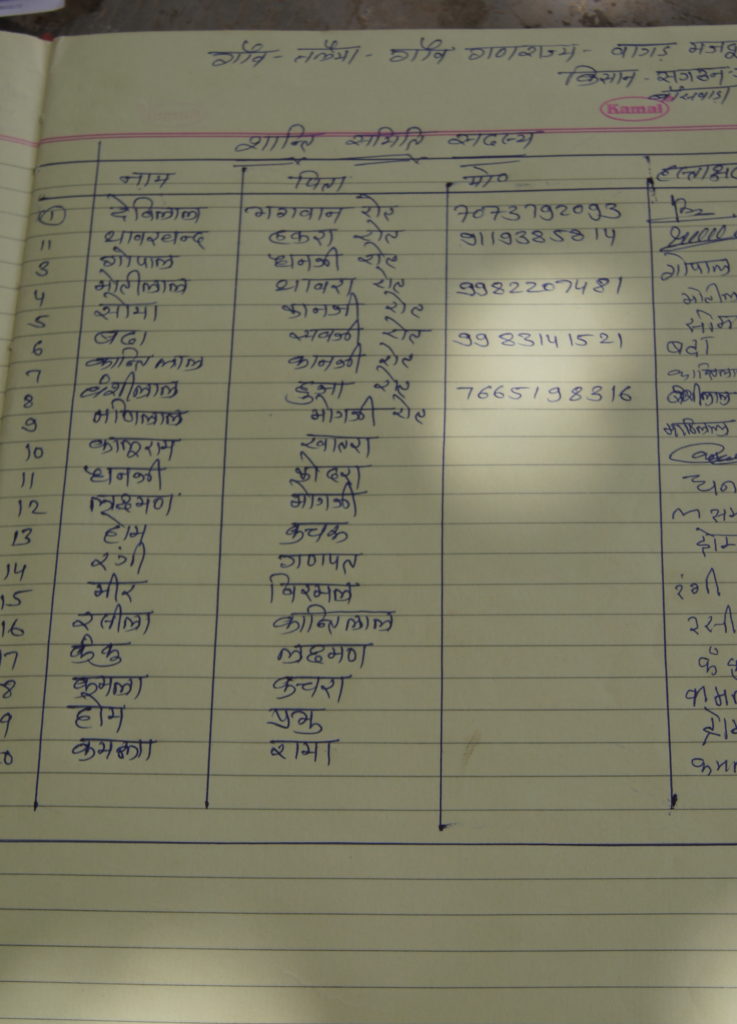 गाँव - तलैया - गाँव गणराज्य - वागड़ मजदू
किसान - संगठन
बाँसवाड़ा
Kamal
शान्ति समिति सदस्य
नाम पिता मो० हस्ताक्षर
1 देविलाल भगवान रोत 7073792093
11 थावरचन्द हकरा रोत 9119385814
3 गोपाल धनजी रोत गोपाल
4 मोतीलाल थावरा रोत 9982207481 मोतील
5 सोमा कानजी रोत सोम
6 बदा रावजी रोत 9983141521 बदा
7 कान्तिलाल कानजी रोत कान्तिला
8 बंशीलाल हुआ रोत 7665198316 बंशीलाल
9 मणिलाल मोगजी रोत मणिलाल
10 कालूराम खातरा
11 धनजी कोदरा धन
12 लक्ष्मण मोगजी
13 होम कचरू होम
14 रंगी गणपत रंगी
15 मीर
16 रसीला कान्तिलाल रसी
17 कंकु लक्ष्मण कं
8 कमला कचरा कम
9 होम प्रभु होम
0 कमला रामा कम